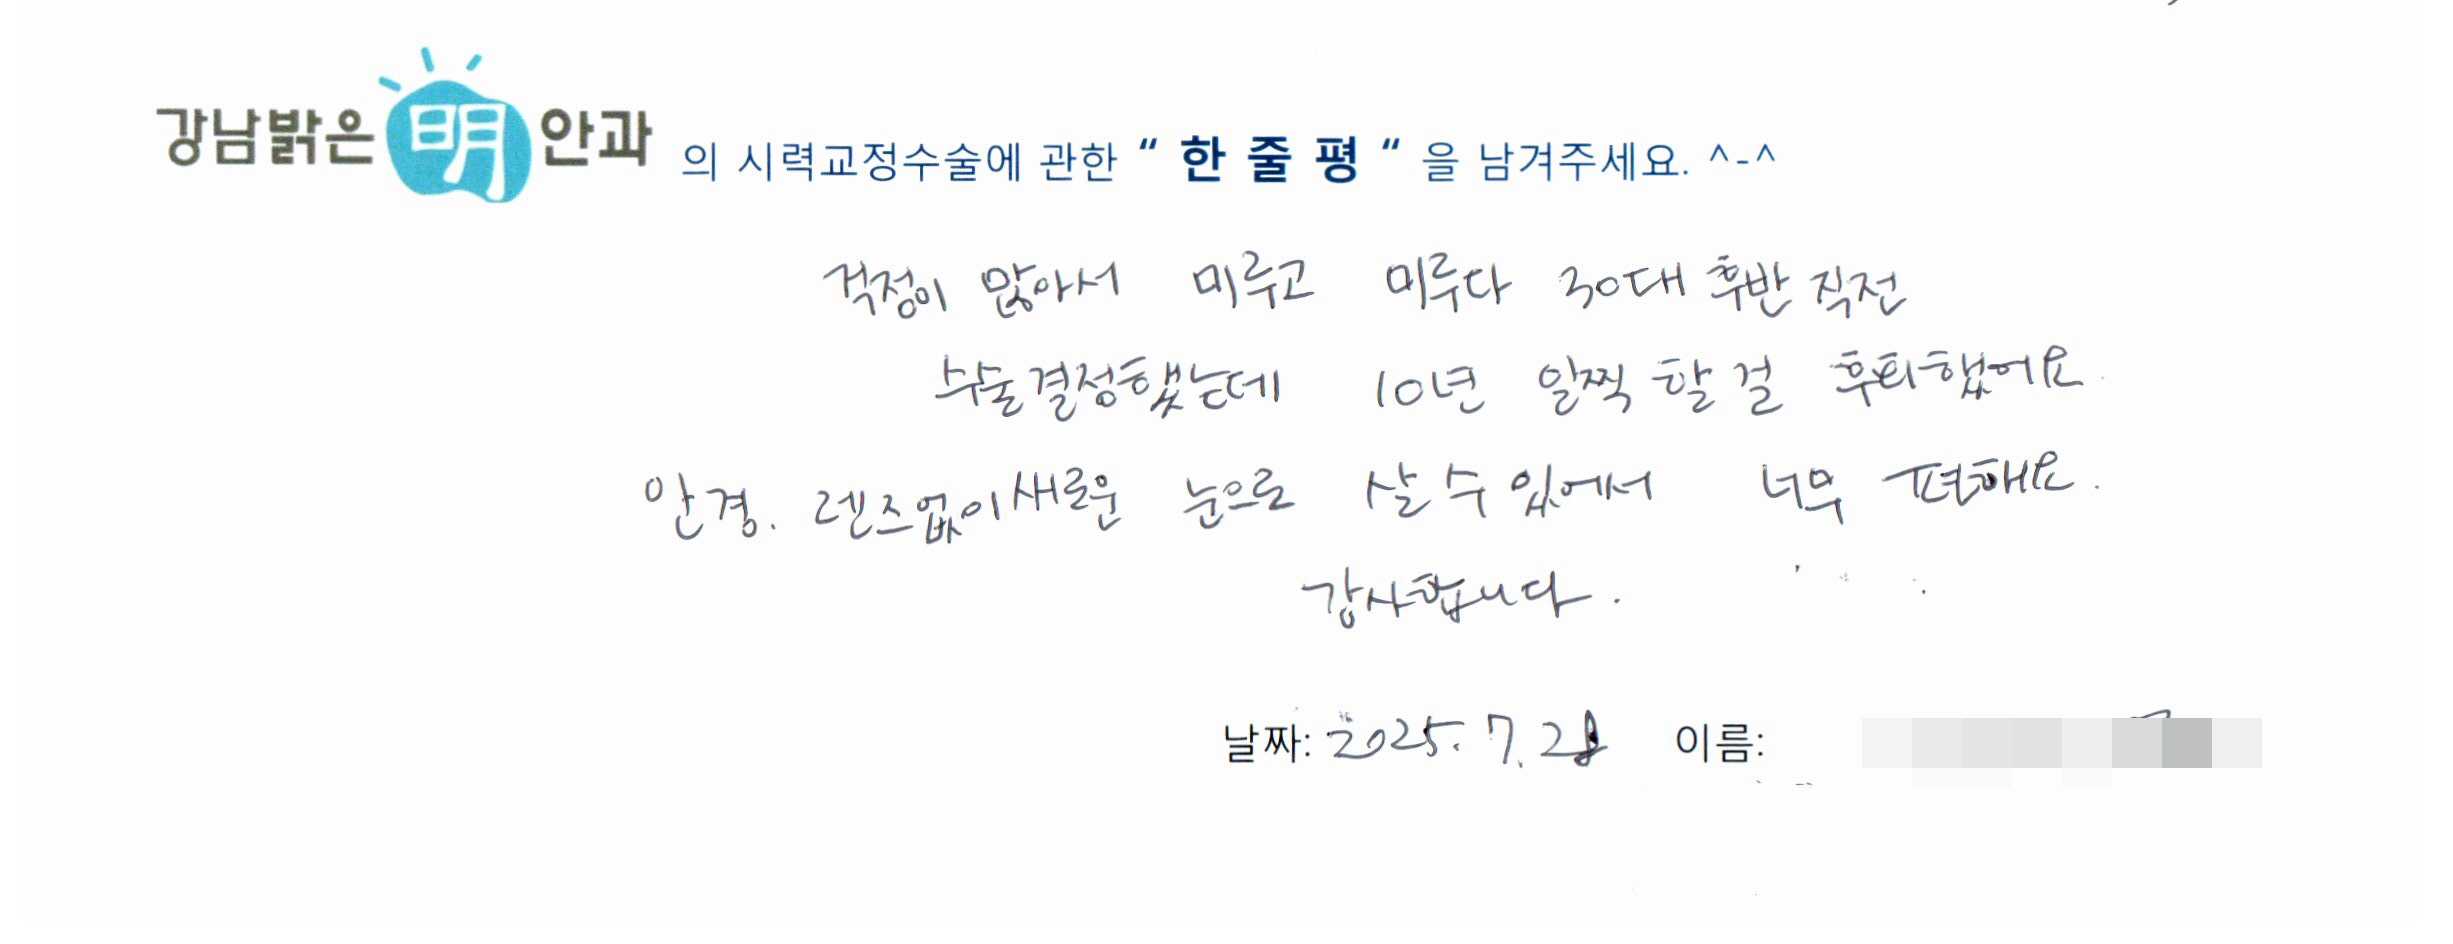 강남밝은明안과 의 시력교정수술에 관한 “ 한 줄 평 “ 을 남겨주세요. ^-^
걱정이 많아서 미루고 미루다 30대 후반 직전
수술결정했는데 10년 일찍 할 걸 후퇴했어요
안경. 렌즈없이 새로운 눈으로 살 수 있어서 너무 편해요.
감사합니다.
날짜: 2025. 7. 이름: